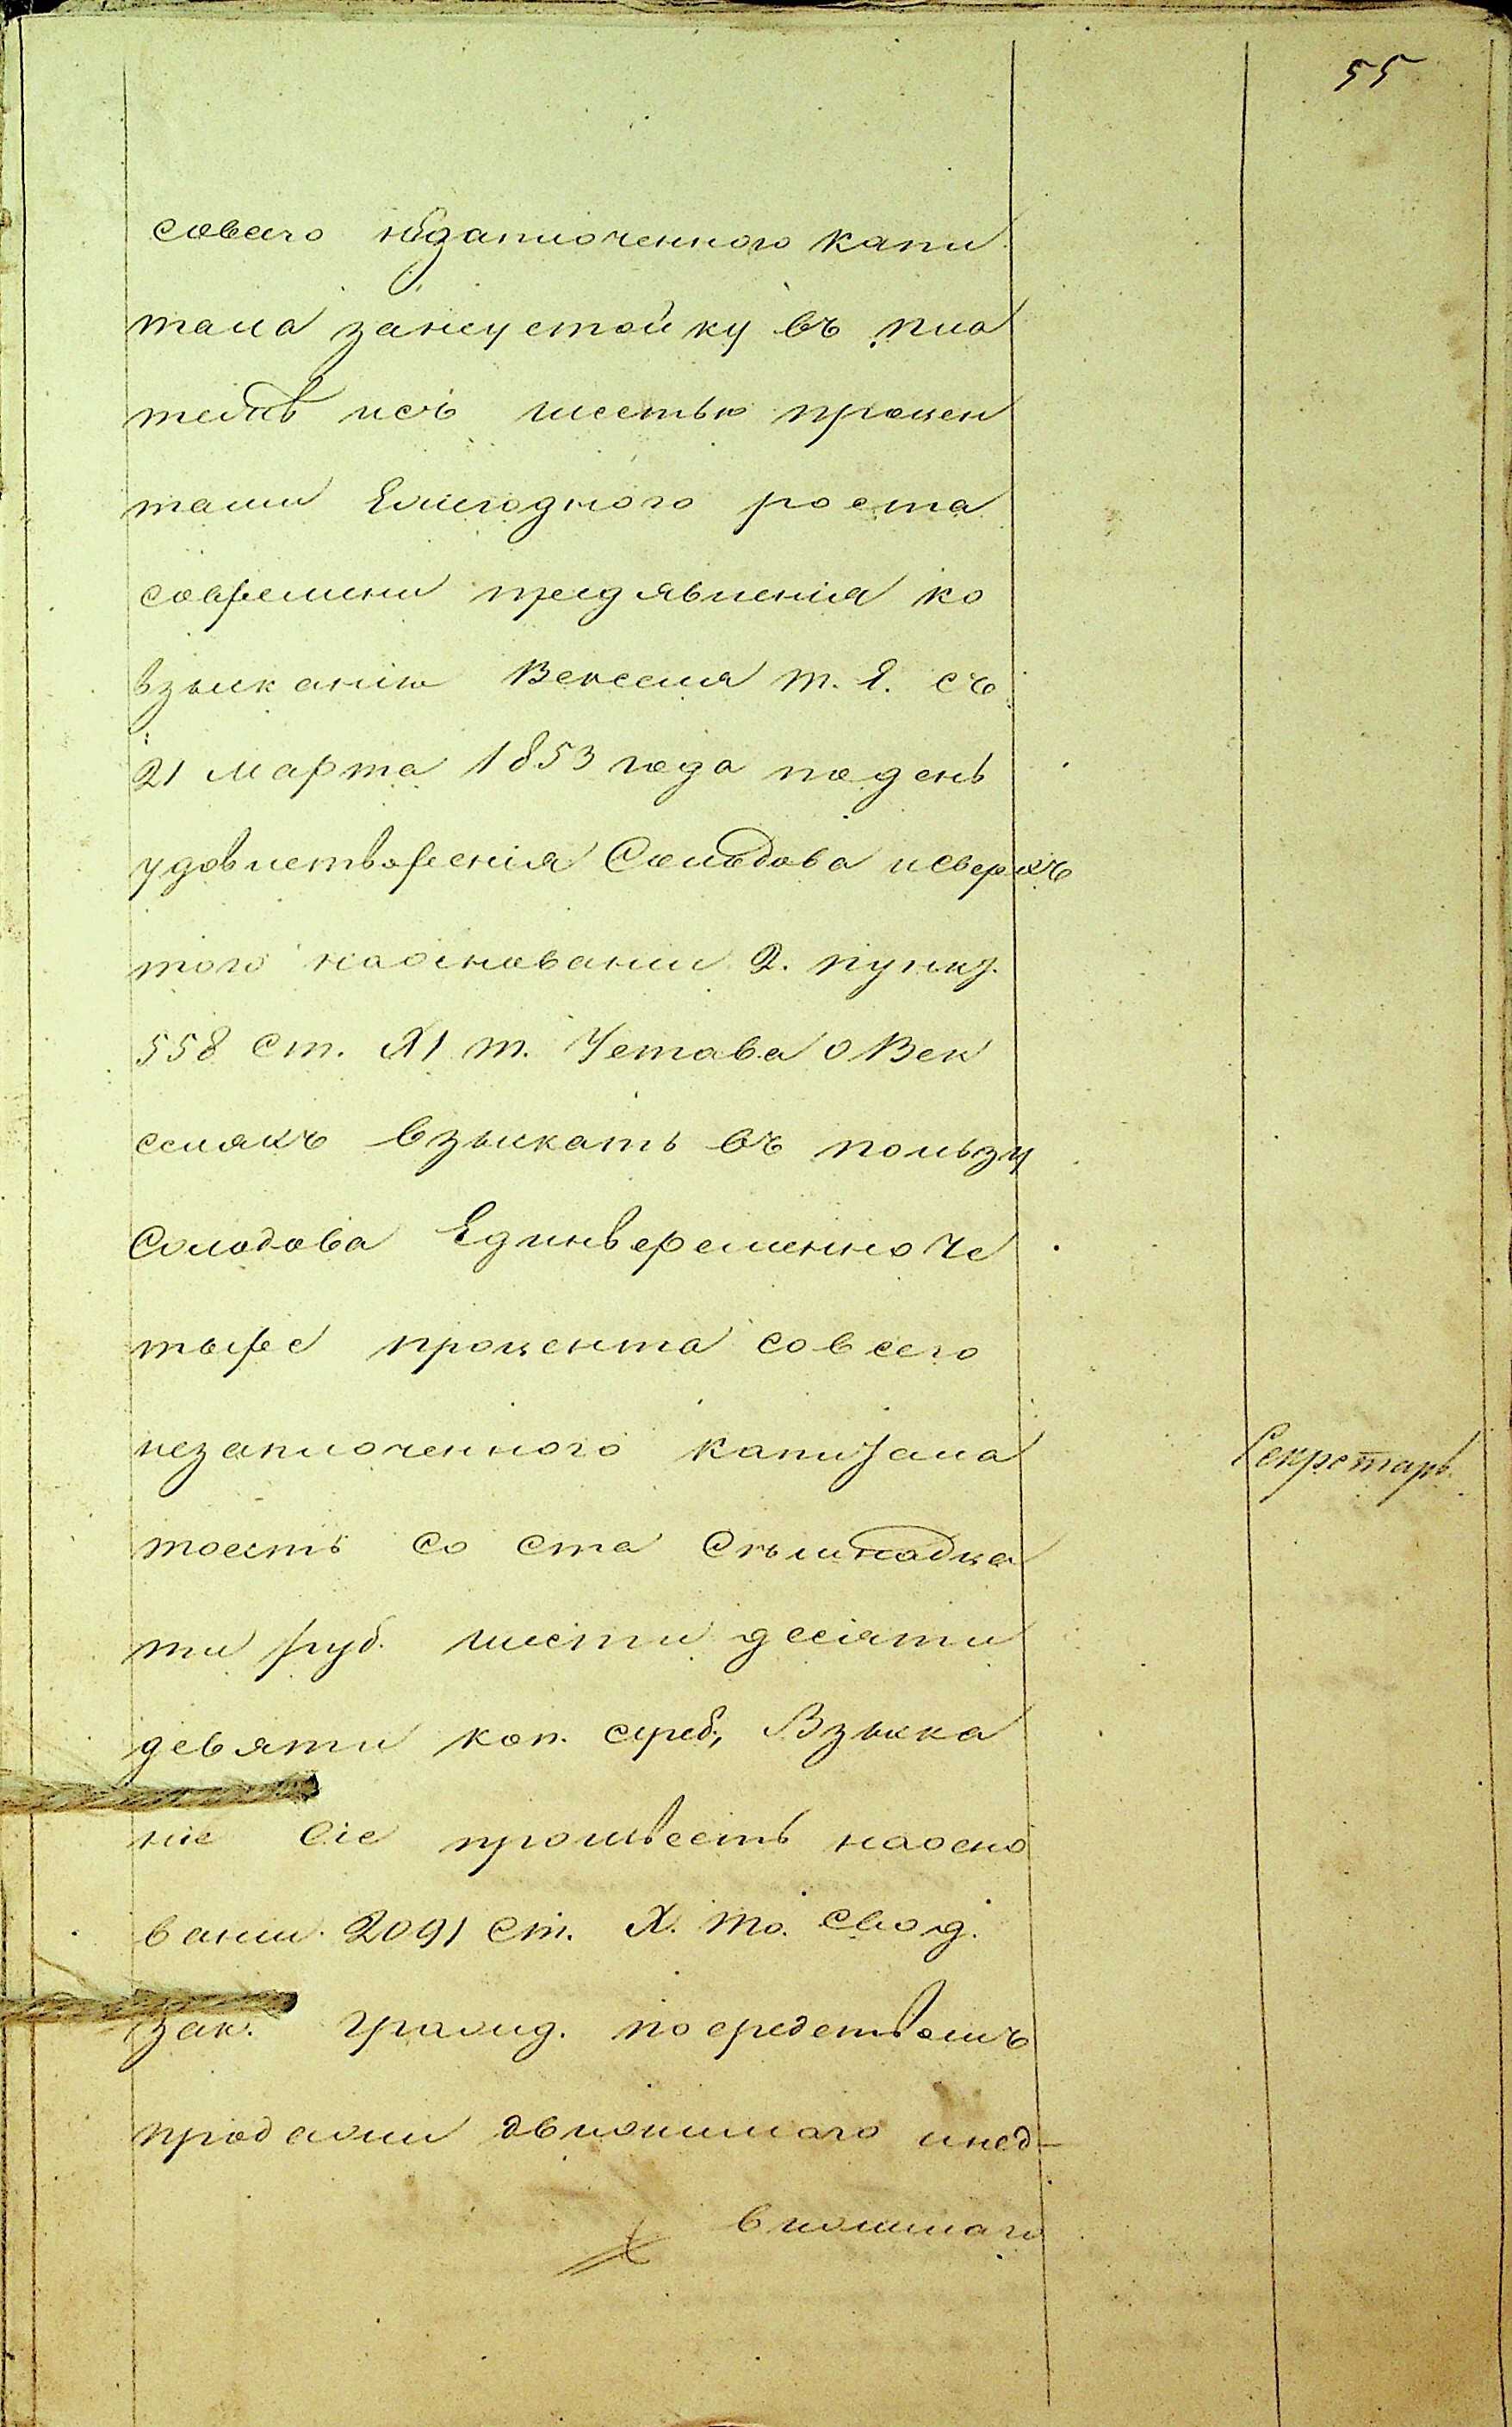 55
совсего незаплоченного капи
тала занеустойку въ пла
теже исъ шестью процен
тами Ежегодного роста
современи предявленія ко
взысканію Векселя т. е. съ
21 марта 1853 года подень
удовлетворенія Солодова исверхъ
того наосновании 2. пункт.
558 ст. XI т. Устава о Век
селяхъ взыскать въ пользу
Солодова Единвременно Че
тыре процента совсего
незаплоченного капитала
тоесть со ста Семнадца
ти руб. шести десяти
девяти коп. сереб, Взыска
ніе Сіе произвесть наосно
вании 2091 ст. X. то. Свод.
Зак. гражд. посредствомъ
Секретарь
продажи движимаго инед-
вижимаго